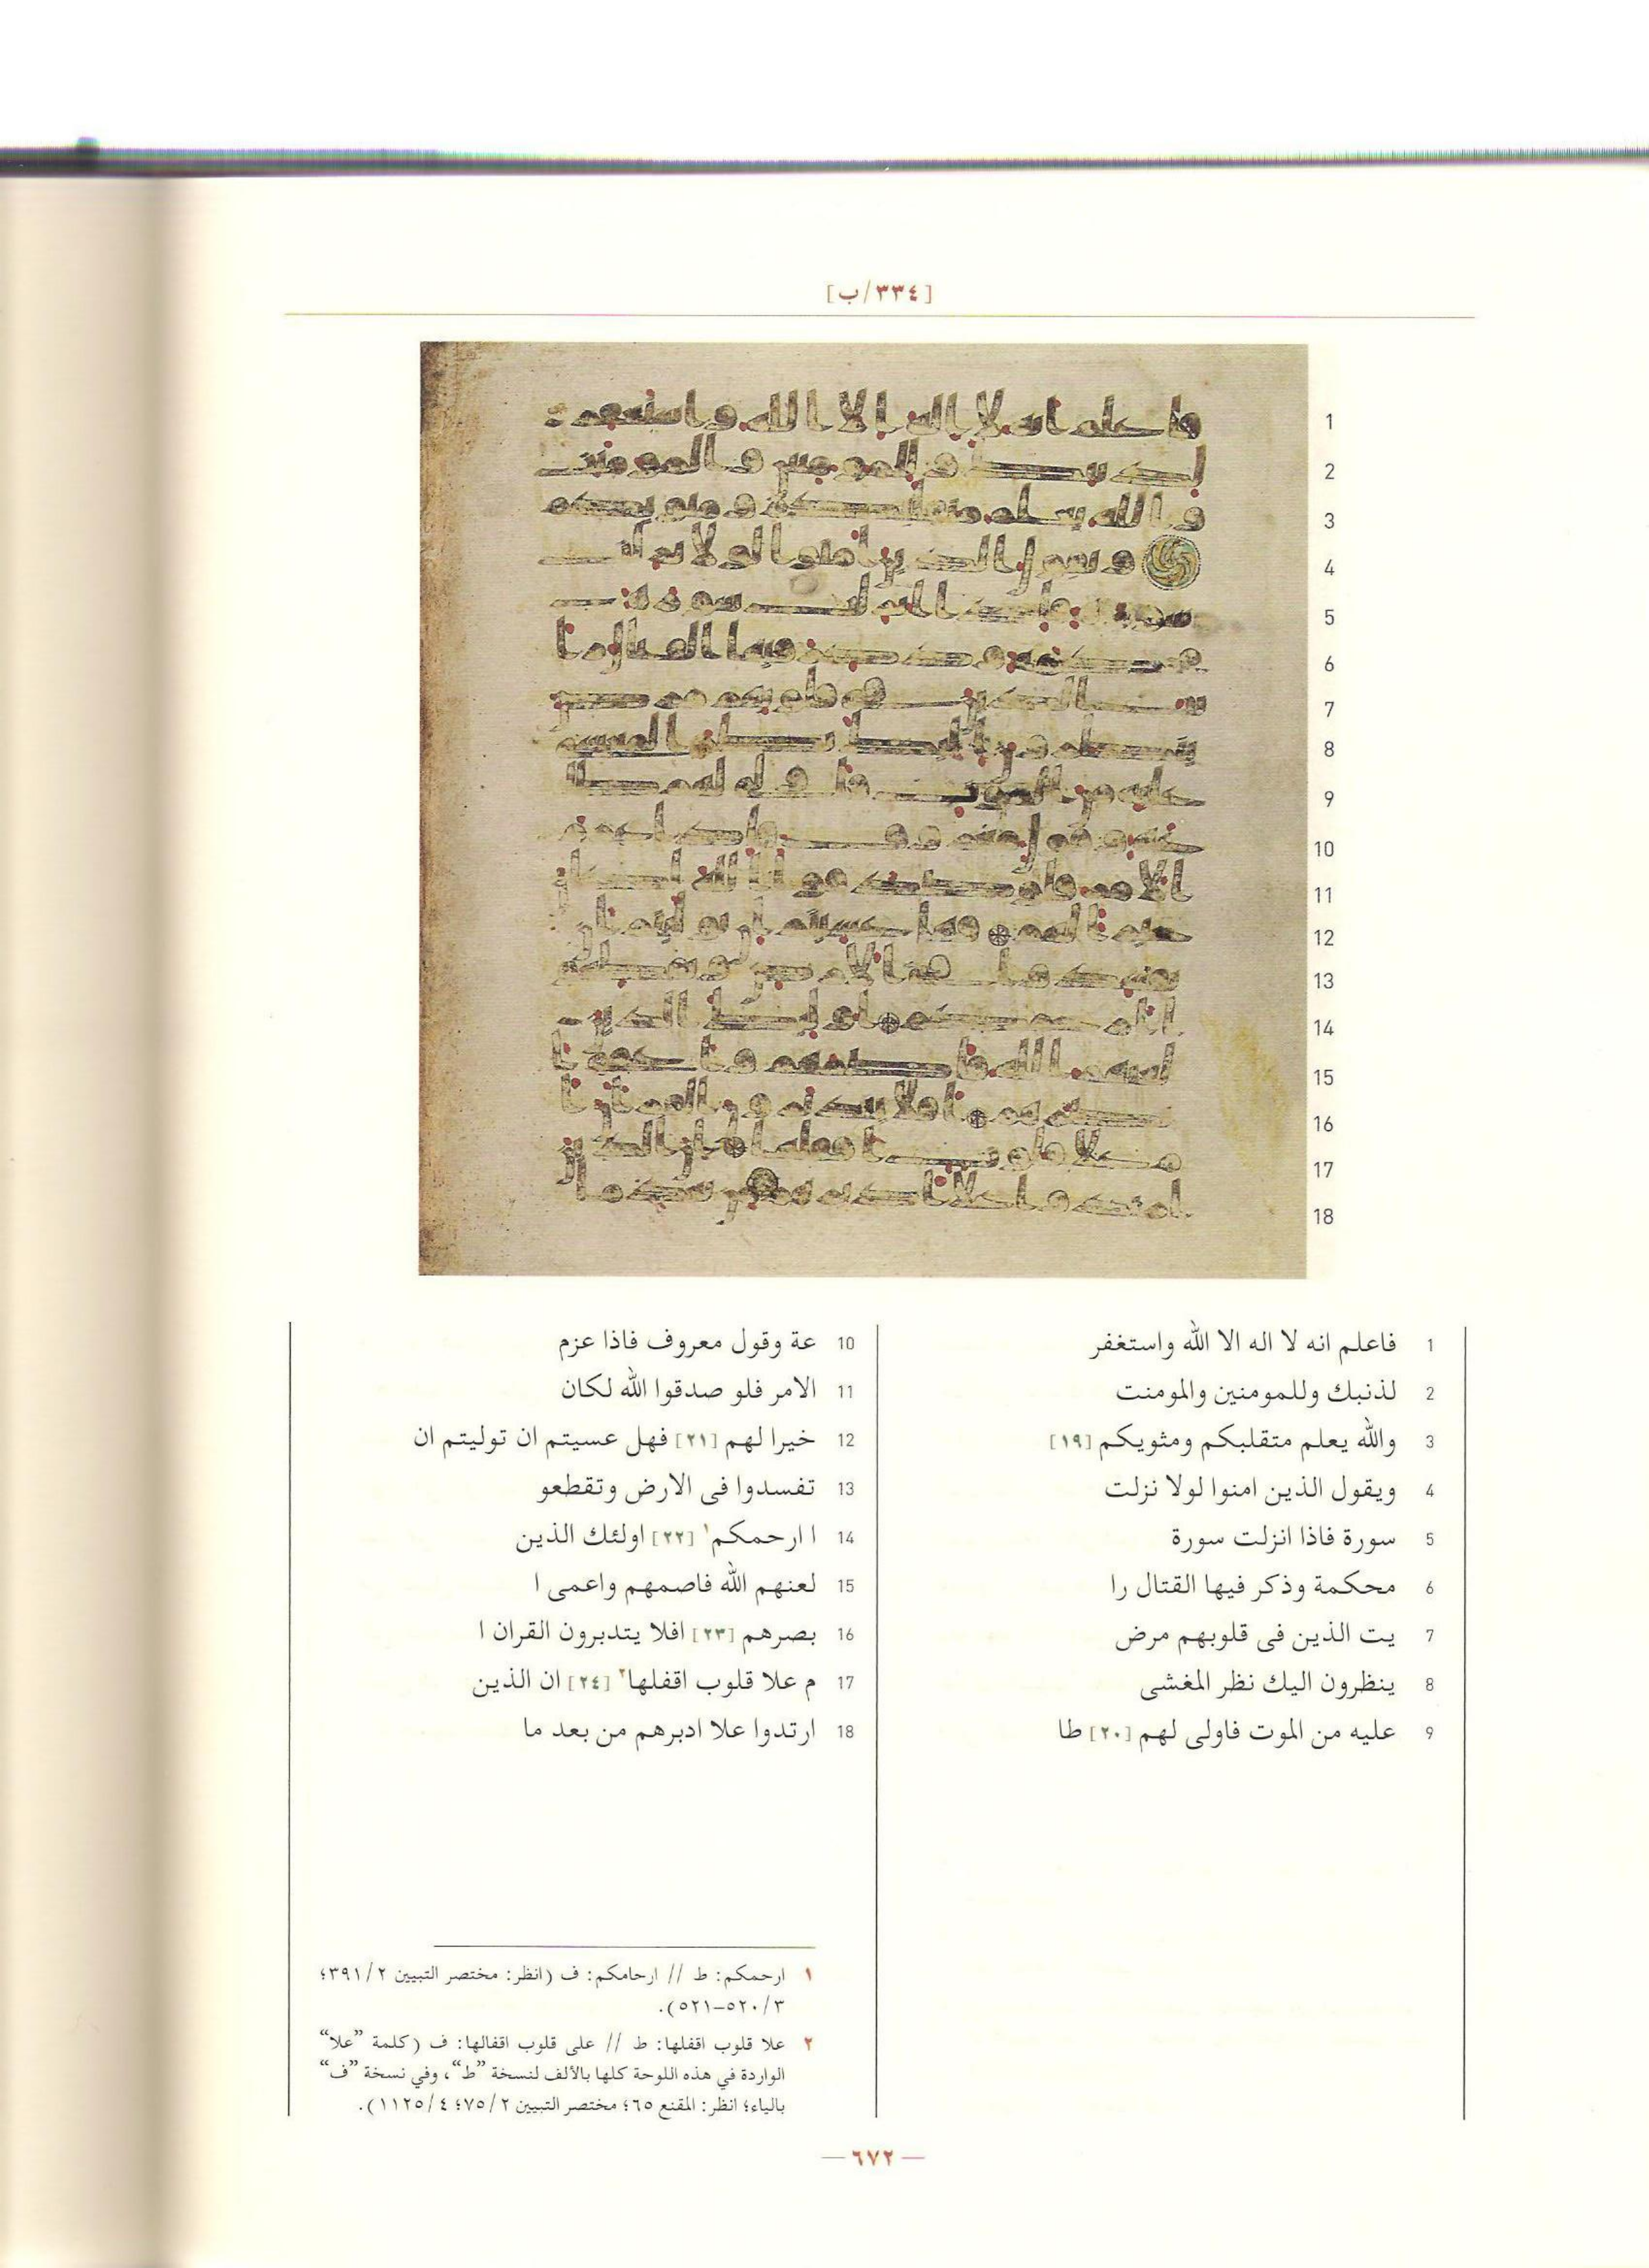 [٣٣٤/ب]
1
2
3
4
5
6
7
8
9
10
11
12
13
14
15
16
17
18
1 فاعلم انه لا اله الا الله واستغفر
2 لذنبك وللمومنين والمومنت
3 والله يعلم متقلبكم ومثويكم [١٩]
4 ويقول الذين امنوا لولا نزلت
5 سورة فاذا انزلت سورة
6 محكمة وذكر فيها القتال را
7 يت الذين فى قلوبهم مرض
8 ينظرون اليك نظر المغشى
9 عليه من الموت فاولى لهم [٢٠] طا
10 عة وقول معروف فاذا عزم
11 الامر فلو صدقوا الله لكان
12 خيرا لهم [٢١] فهل عسيتم ان توليتم ان
13 تفسدوا فى الارض وتقطعو
14 ا ارحمكم١ [٢٢] اولئك الذين
15 لعنهم الله فاصمهم واعمى ا
16 بصرهم [٢٣] افلا يتدبرون القران ا
17 م علا قلوب اقفلها٢ [٢٤] ان الذين
18 ارتدوا علا ادبرهم من بعد ما
١ ارحمكم: ط // ارحامكم: ف (انظر: مختصر التبيين ٣٩١/٢؛
٥٢٠/٣–٥٢١).
٢ علا قلوب اقفلها: ط // على قلوب اقفالها: ف (كلمة ”علا“
الواردة في هذه اللوحة كلها بالألف لنسخة ”ط“، وفي نسخة ”ف“
بالياء؛ انظر: المقنع ٦٥؛ مختصر التبيين ٧٥/٢؛ ١١٢٥/٤).
— ٦٧٢ —